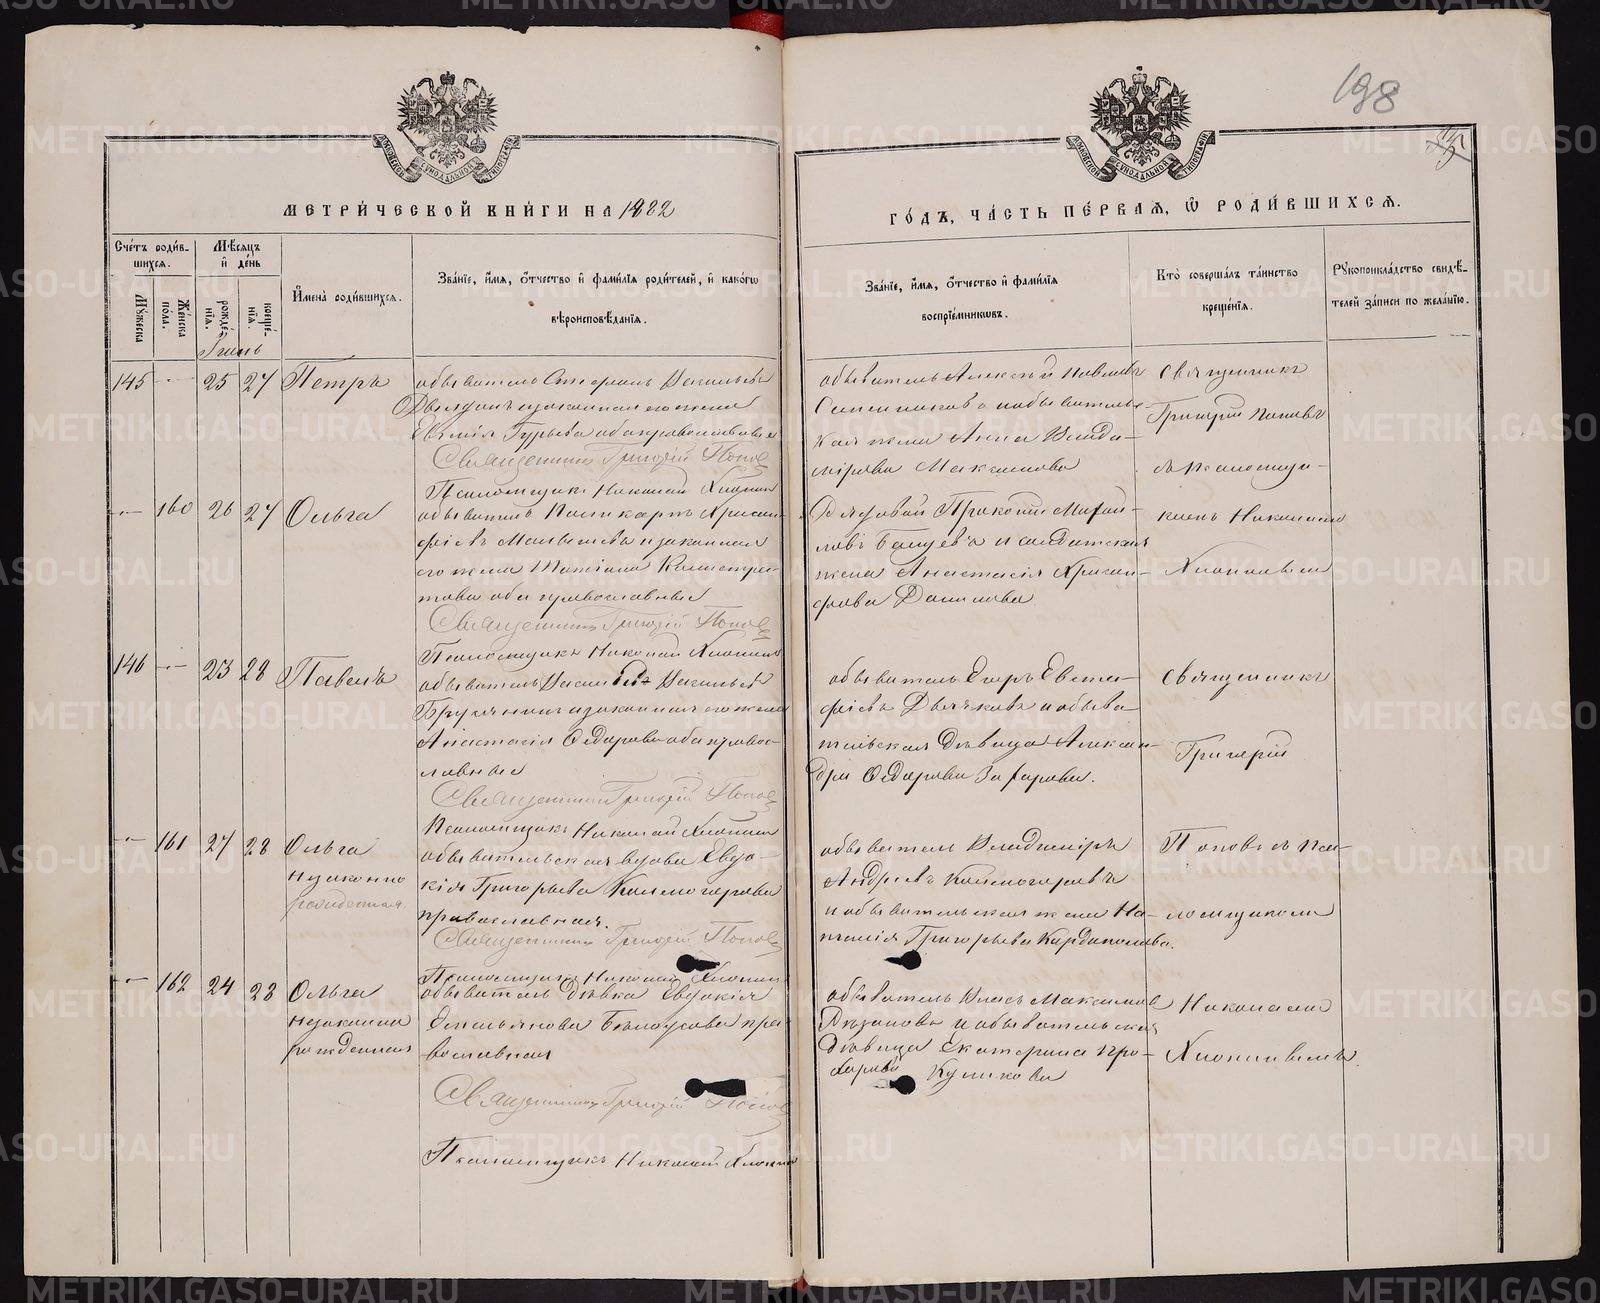 198
МЕТРИ́ЧЕСКОЙ КНИ́ГИ НА 1882
ГО́ДЪ, ЧА́СТЬ ПЕ́РВАЯ, Ѡ РОДИ́ВШИХСЯ.
Сче́тъ роди́в-
шихся.
Мѣ́сяцъ
и де́нь
Мꙋ́жеска
Же́нска
по́ла.
рожде́-
нїя.
креще́-
нїя.
И҆мена̀ роди́вшихся.
Зва́нїе, и҆́мя, ѻ҆́тчество и҆ фами́лїя роди́телей, и҆ како́гѡ
вѣроисповѣ́данїя.
Зва́нїе, и҆́мя, ѻ҆́тчество и҆ фами́лїя
воспрїе́мникѡвъ.
Кто̀ соверша́лъ та́инство
креще́нїя.
Рꙋкоприкла́дство свидѣ́-
телей за́писи по жела́нїю.
145 25 27 Петръ
обыватель Стефанъ Васильевъ
и законная его жена
Евгенія Гурьева оба православные
Священникъ Григорій Попов
Псаломщикъ Николай Хионин
обыватель Алексѣй Павловъ
и обыватель-
ская жена Анна Влади-
мірова Максимова
Священникъ
Григорій Поповъ
съ Псаломщи-
160 26 27 Ольга
обыватель Поликарпъ Хрисан-
фіевъ и законная
его жена Татіана Калистра-
това оба православные
Священникъ Григорій Попов
Псаломщикъ Николай Хионин
Рядовой Прокопій Михаи-
ловъ и солдатская
жена Анастасія Хрисан-
фова Данилова
комъ Николаемъ
Хиониным
146 23 28 Павелъ
обыватель Василій Васильевъ
и законная его жена
Анастасія Ѳедорова оба правос-
лавные
Священникъ Григорій Попов
Псаломщикъ Николай Хионин
обыватель Егоръ Евста-
фіевъ Дьячковъ и обыва-
тельская дѣвица Алексан-
дра Ѳедорова Захарова.
Священникъ
Григорій
161 27 28 Ольга
незаконно
рожденная
обывательская вдова Евдо-
кія Григорьева Колмогорова
православная.
Священникъ Григорій Попов
Псаломщикъ Николай Хионин
обыватель Владиміръ
Андреевъ Колмогоровъ
и обывательская жена На-
талія Григорьева Кардаполова.
Поповъ съ Пса-
ломщикомъ
162 24 28 Ольга
незаконно
рожденная
обыватель дѣвка Евдокія
Емельянова Бѣлоусова пра-
вославная
Священникъ Григорій Попов
Псаломщикъ Николай Хионин
обыватель Власъ Максимов
и обывательская
дѣвица Екатерина Про-
хорова Куликова
Николаемъ
Хиониным